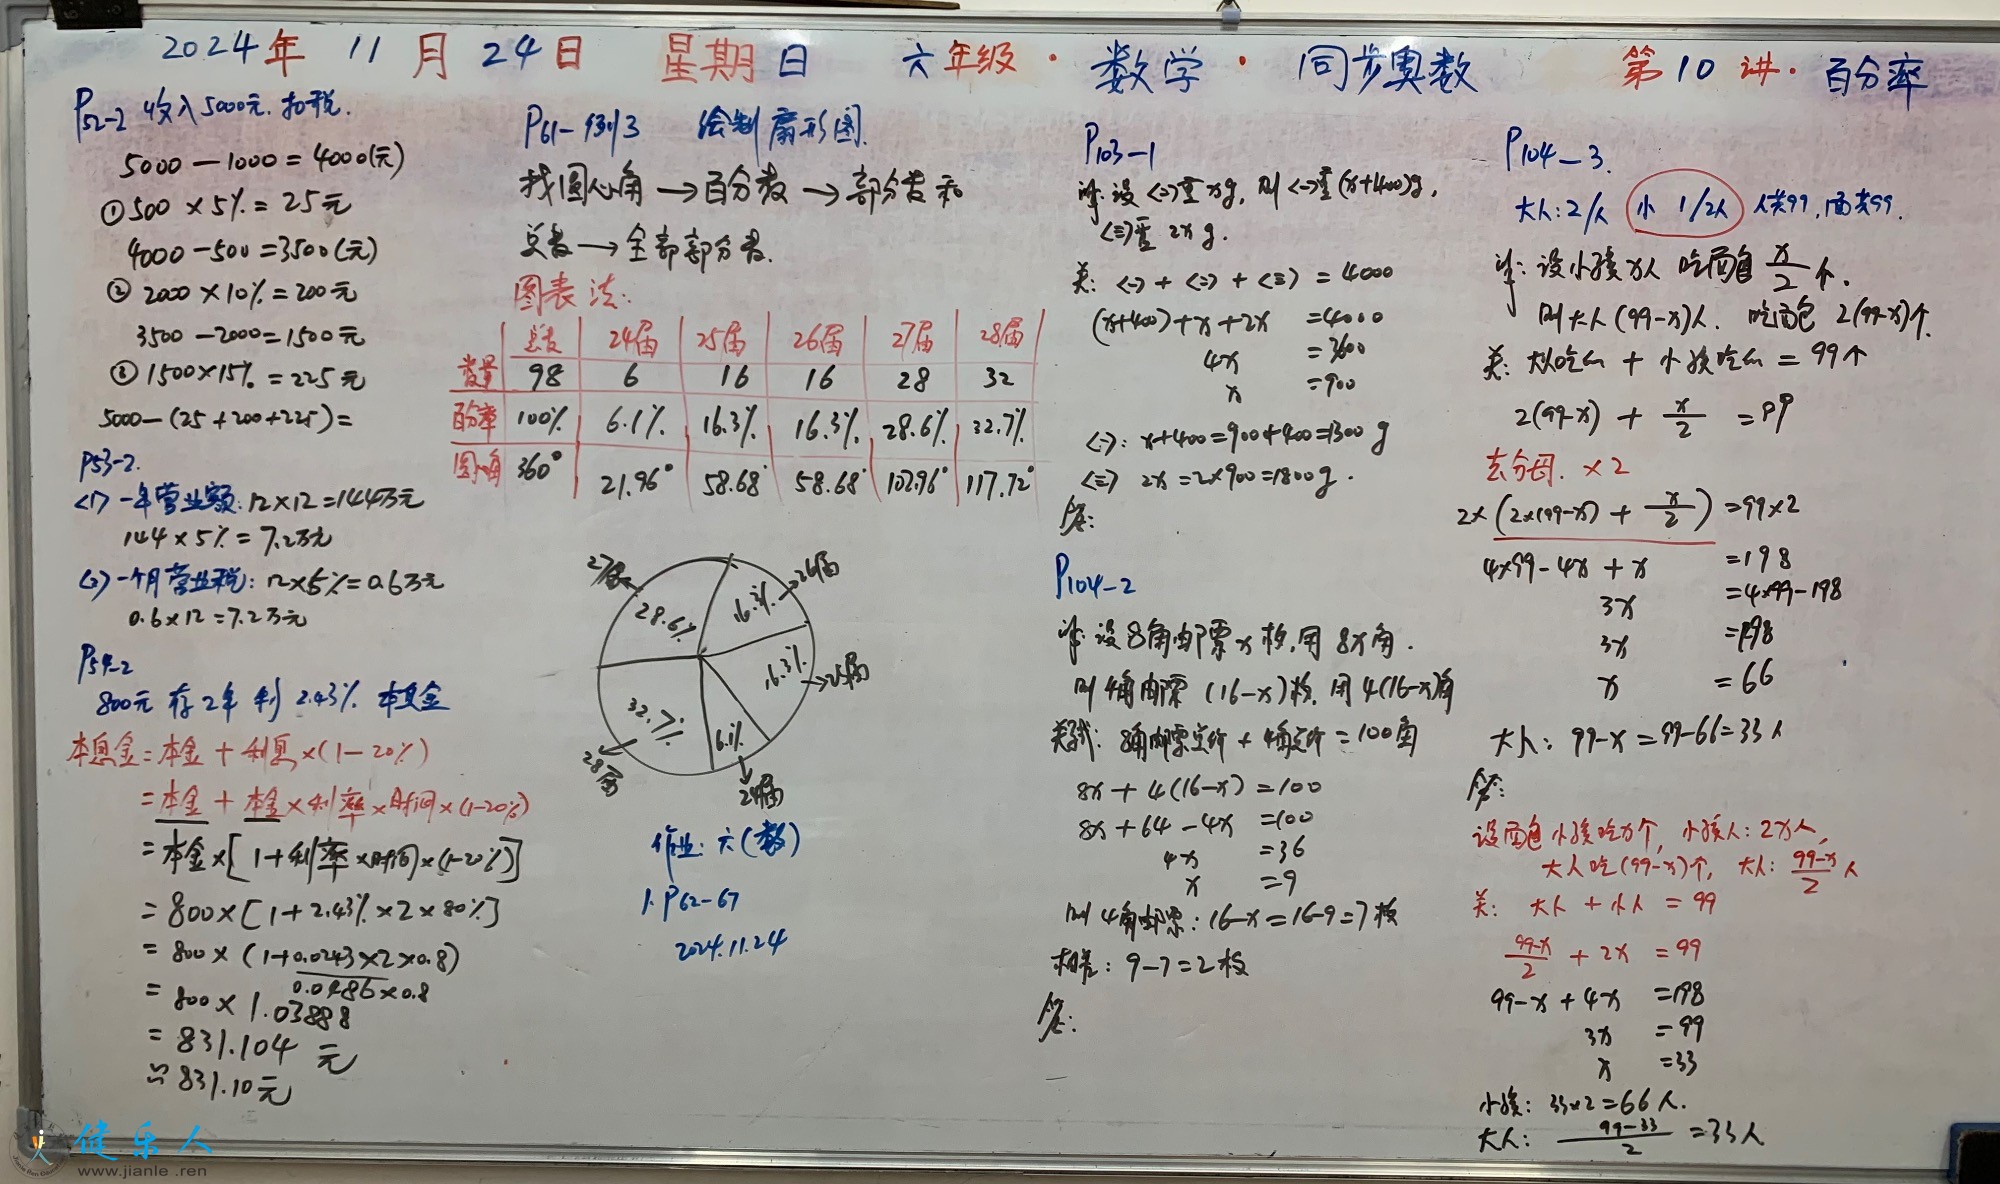 2024年 11月 24日 星期日 六年级·数学·同步奥数 第10讲·百分率
P52-2 收入5000元.扣税.
5000－1000＝4000(元)
①500×5%＝25元
4000－500＝3500(元)
②2000×10%＝200元
3500－2000＝1500元
③1500×15%＝225元
5000－(25+200+225)＝
P53-2.
<1>一年营业额:12×12＝144万元
144×5%＝7.2万元
<2>一个月营业税:12×5%＝0.6万元
0.6×12＝7.2万元
P54-2
800元 存2年 利2.43% 本息金
本息金＝本金＋利息×(1－20%)
＝本金＋本金×利率×时间×(1-20%)
＝本金×[1+利率×时间×(1-20%)]
＝800×[1+2.43%×2×80%]
＝800×(1+0.0243×2×0.8)
0.0486×0.8
＝800×1.03888
＝831.104元
≈831.10元
P61-例3 绘制扇形图.
找圆心角→百分数→部分数和
总数→全部部分数.
图表法:
总数 24届 25届 26届 27届 28届
数量 98 6 16 16 28 32
百分率 100% 6.1% 16.3% 16.3% 28.6% 32.7%
圆心角 360° 21.96° 58.68° 58.68° 102.96° 117.72°
27届
26届
28.6%
16.3%
16.3%
25届
32.7%
6.1%
28届
24届
作业:六(数)
1.P62-67
2024.11.24
P103-1
解:设<二>重xg,则<一>重(x+400)g,
<三>重2xg.
关:<一>+<二>+<三>＝4000
(x+400)+x+2x＝4000
4x＝3600
x＝900
<一>:x+400＝900+400＝1300g
<三>2x＝2×900＝1800g.
答:
P104-2
解:设8角邮票x枚,用8x角.
则4角邮票(16-x)枚.用4(16-x)角
关式:8角邮票总价+4角总价＝100角
8x+4(16-x)＝100
8x+64-4x＝100
4x＝36
x＝9
则4角邮票:16-x＝16-9＝7枚
相差:9-7＝2枚
答:
P104-3.
大人:2/人 小 1/2人 人共99,面共99.
解:设小孩x人 吃面包x/2个.
则大人(99-x)人.吃面包2(99-x)个.
关:大人吃的+小孩吃的＝99个
2(99-x)+x/2＝99
去分母.×2
2×(2×(99-x)+x/2)＝99×2
4×99-4x+x＝198
3x＝4×99-198
3x＝198
x＝66
大人:99-x＝99-66＝33人
答:
设面包小孩吃x个,小孩人:2x人,
大人吃(99-x)个,大人:99-x/2人
关:大人+小人＝99
99-x/2+2x＝99
99-x+4x＝198
3x＝99
x＝33
小孩:33×2＝66人.
大人:99-33/2＝33人
健乐人
www.jianle.ren